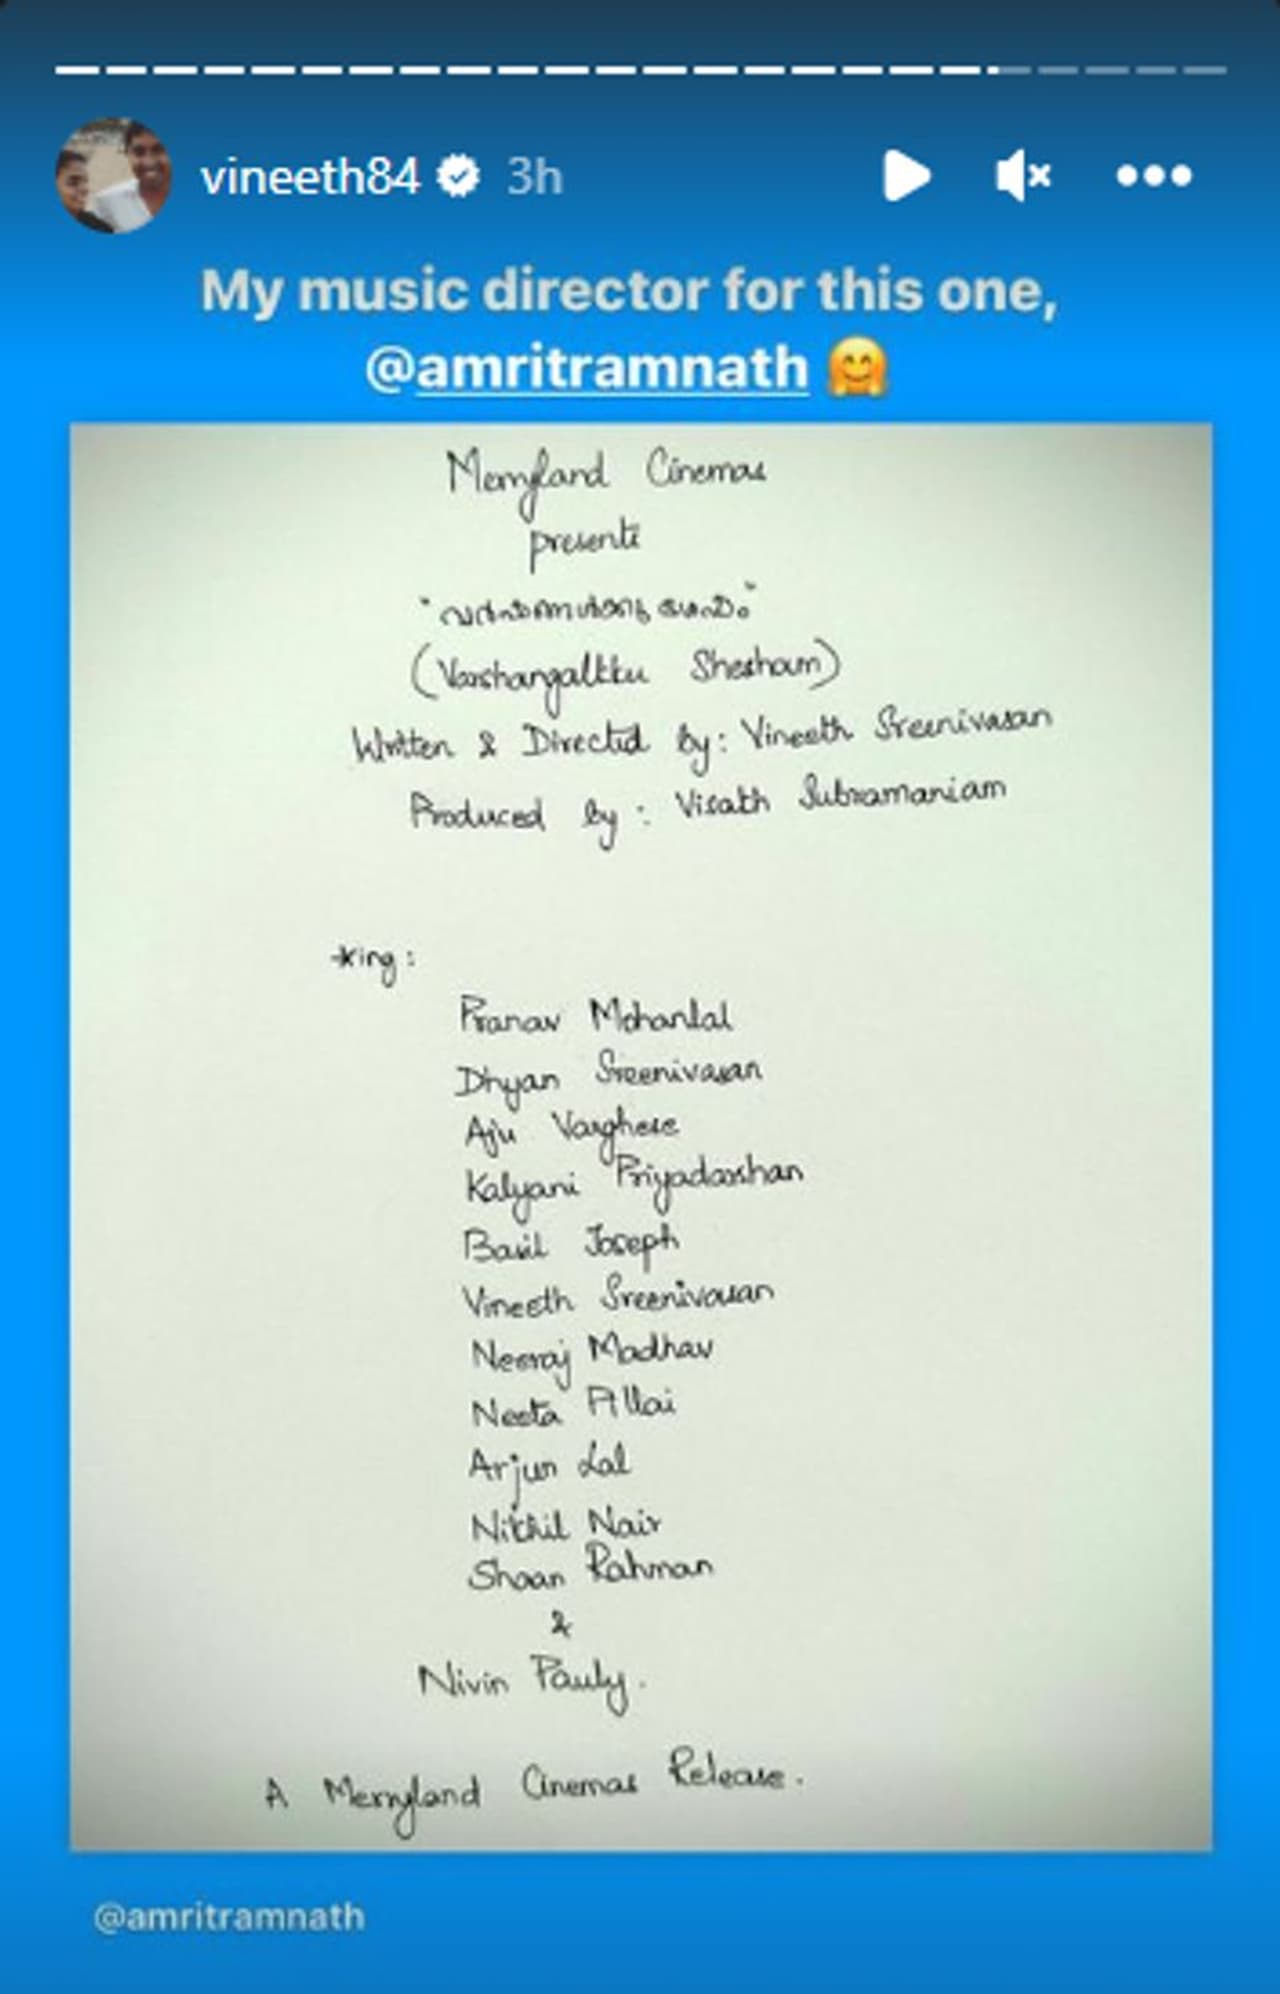 vineeth84 3h
My music director for this one,
@amritramnath 🤗
Merryland Cinemas
presents
"വർഷങ്ങൾക്കു ശേഷം"
(Varshangalkku Shesham)
Written & Directed by: Vineeth Sreenivasan
Produced by: Visakh Subramaniam
king:
Pranav Mohanlal
Dhyan Sreenivasan
Aju Varghese
Kalyani Priyadarshan
Basil Joseph
Vineeth Sreenivasan
Neeraj Madhav
Neeta Pillai
Arjun Lal
Nikhil Nair
Shaan Rahman
&
Nivin Pauly.
A Merryland Cinemas Release.
@amritramnath